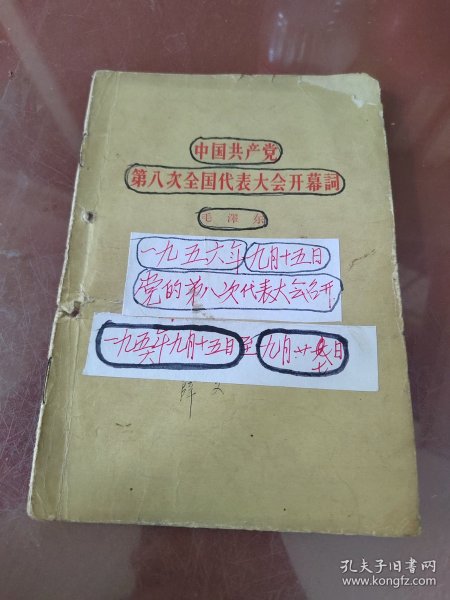 中国共产党
第八次全国代表大会开幕詞
毛澤东
一九五六年九月十五日
党的第八次代表大会召开
一九五六年九月十五日至九月廿七日
孔夫子旧书网
www.kongfz.com